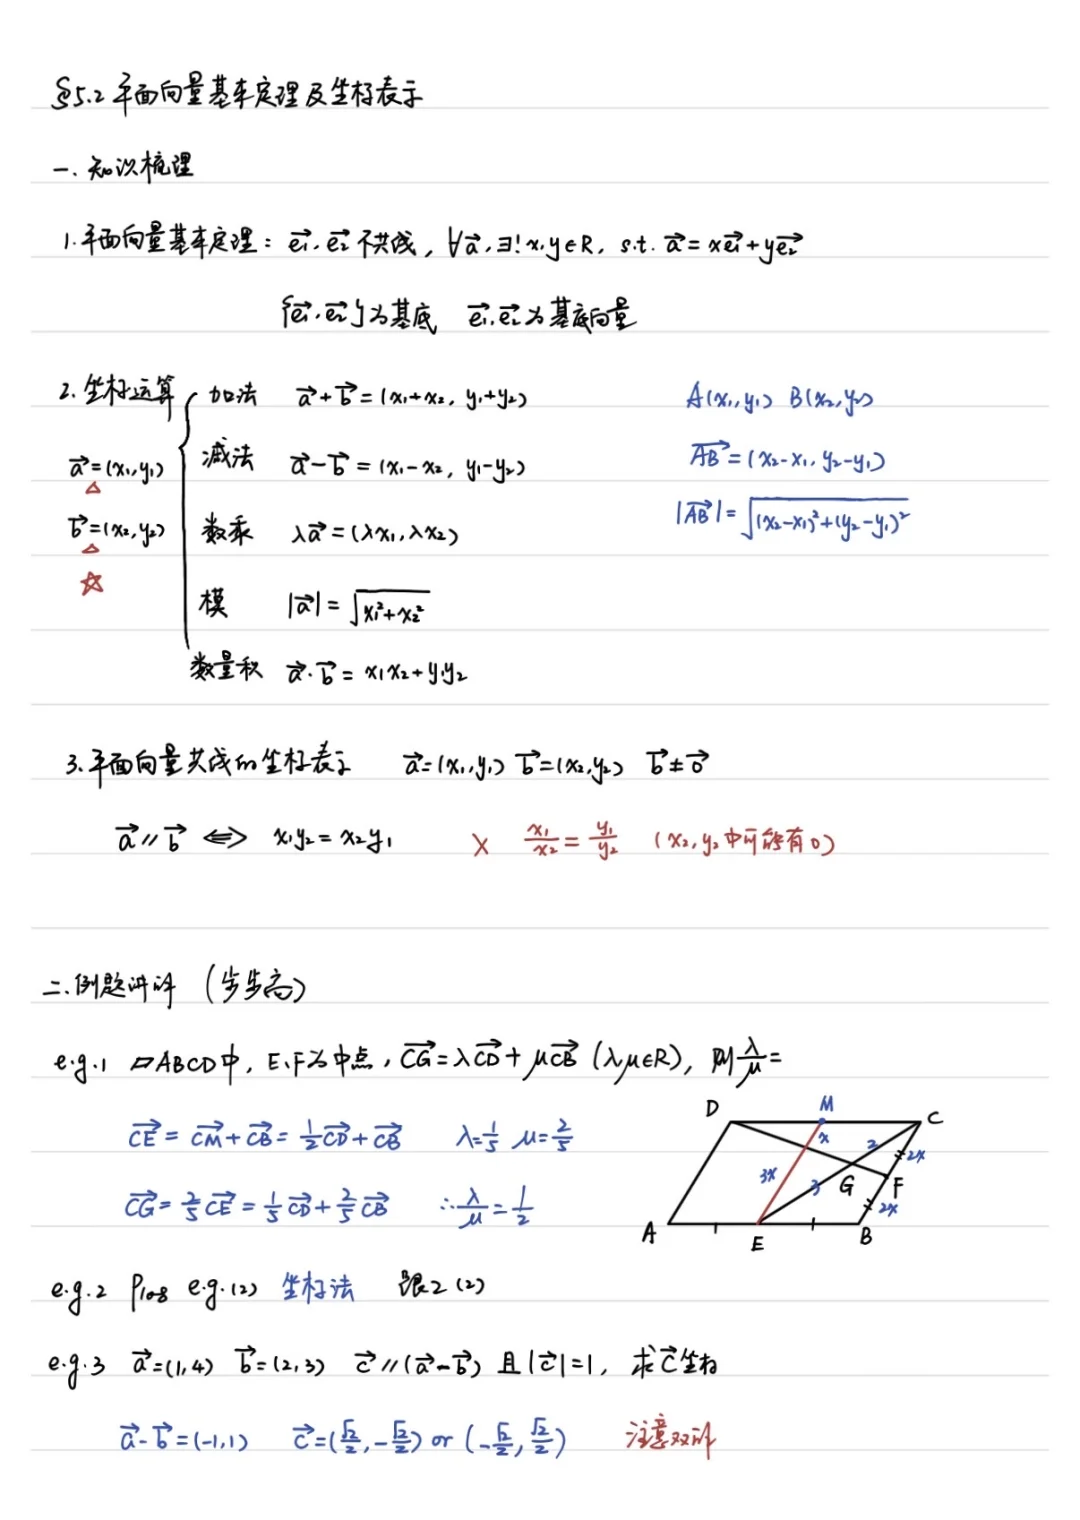 §5.2 平面向量基本定理及坐标表示
一、知识梳理
1. 平面向量基本定理：e₁⃗, e₂⃗ 不共线，∀a⃗, ∃! x, y∈R, s.t. a⃗ = xe₁⃗ + ye₂⃗
{e₁⃗, e₂⃗}为基底 e₁⃗, e₂⃗为基底向量
2. 坐标运算
a⃗=(x₁,y₁)
△
b⃗=(x₂,y₂)
△
☆
加法 a⃗+b⃗=(x₁+x₂, y₁+y₂)
减法 a⃗-b⃗=(x₁-x₂, y₁-y₂)
数乘 λa⃗=(λx₁,λx₂)
模 |a⃗|=√(x₁²+x₂²)
数量积 a⃗·b⃗=x₁x₂+y₁y₂
A(x₁,y₁) B(x₂,y₂)
AB⃗=(x₂-x₁, y₂-y₁)
|AB⃗|=√((x₂-x₁)²+(y₂-y₁)²)
3. 平面向量共线的坐标表示 a⃗=(x₁,y₁) b⃗=(x₂,y₂) b⃗≠0⃗
a⃗∥b⃗ ⇔ x₁y₂=x₂y₁ × x₁/x₂=y₁/y₂ (x₂,y₂中可能有0)
二、例题讲评 (步步高)
e.g.1 ▱ABCD中, E、F为中点, CG⃗=λCD⃗+μCB⃗ (λ,μ∈R), 则λ/μ=
CE⃗=CM⃗+CB⃗=1/2CD⃗+CB⃗ λ=1/5 μ=2/5
CG⃗=2/5CE⃗=1/5CD⃗+2/5CB⃗ ∴λ/μ=1/2
D M C
x 2 2x
3x 3 G F
2x
A E B
e.g.2 P108 e.g.(2) 坐标法 跟2(2)
e.g.3 a⃗=(1,4) b⃗=(2,3) c⃗∥(a⃗-b⃗) 且|c⃗|=1, 求c⃗坐标
a⃗-b⃗=(-1,1) c⃗=(√2/2,-√2/2) or (-√2/2,√2/2) 注意双解